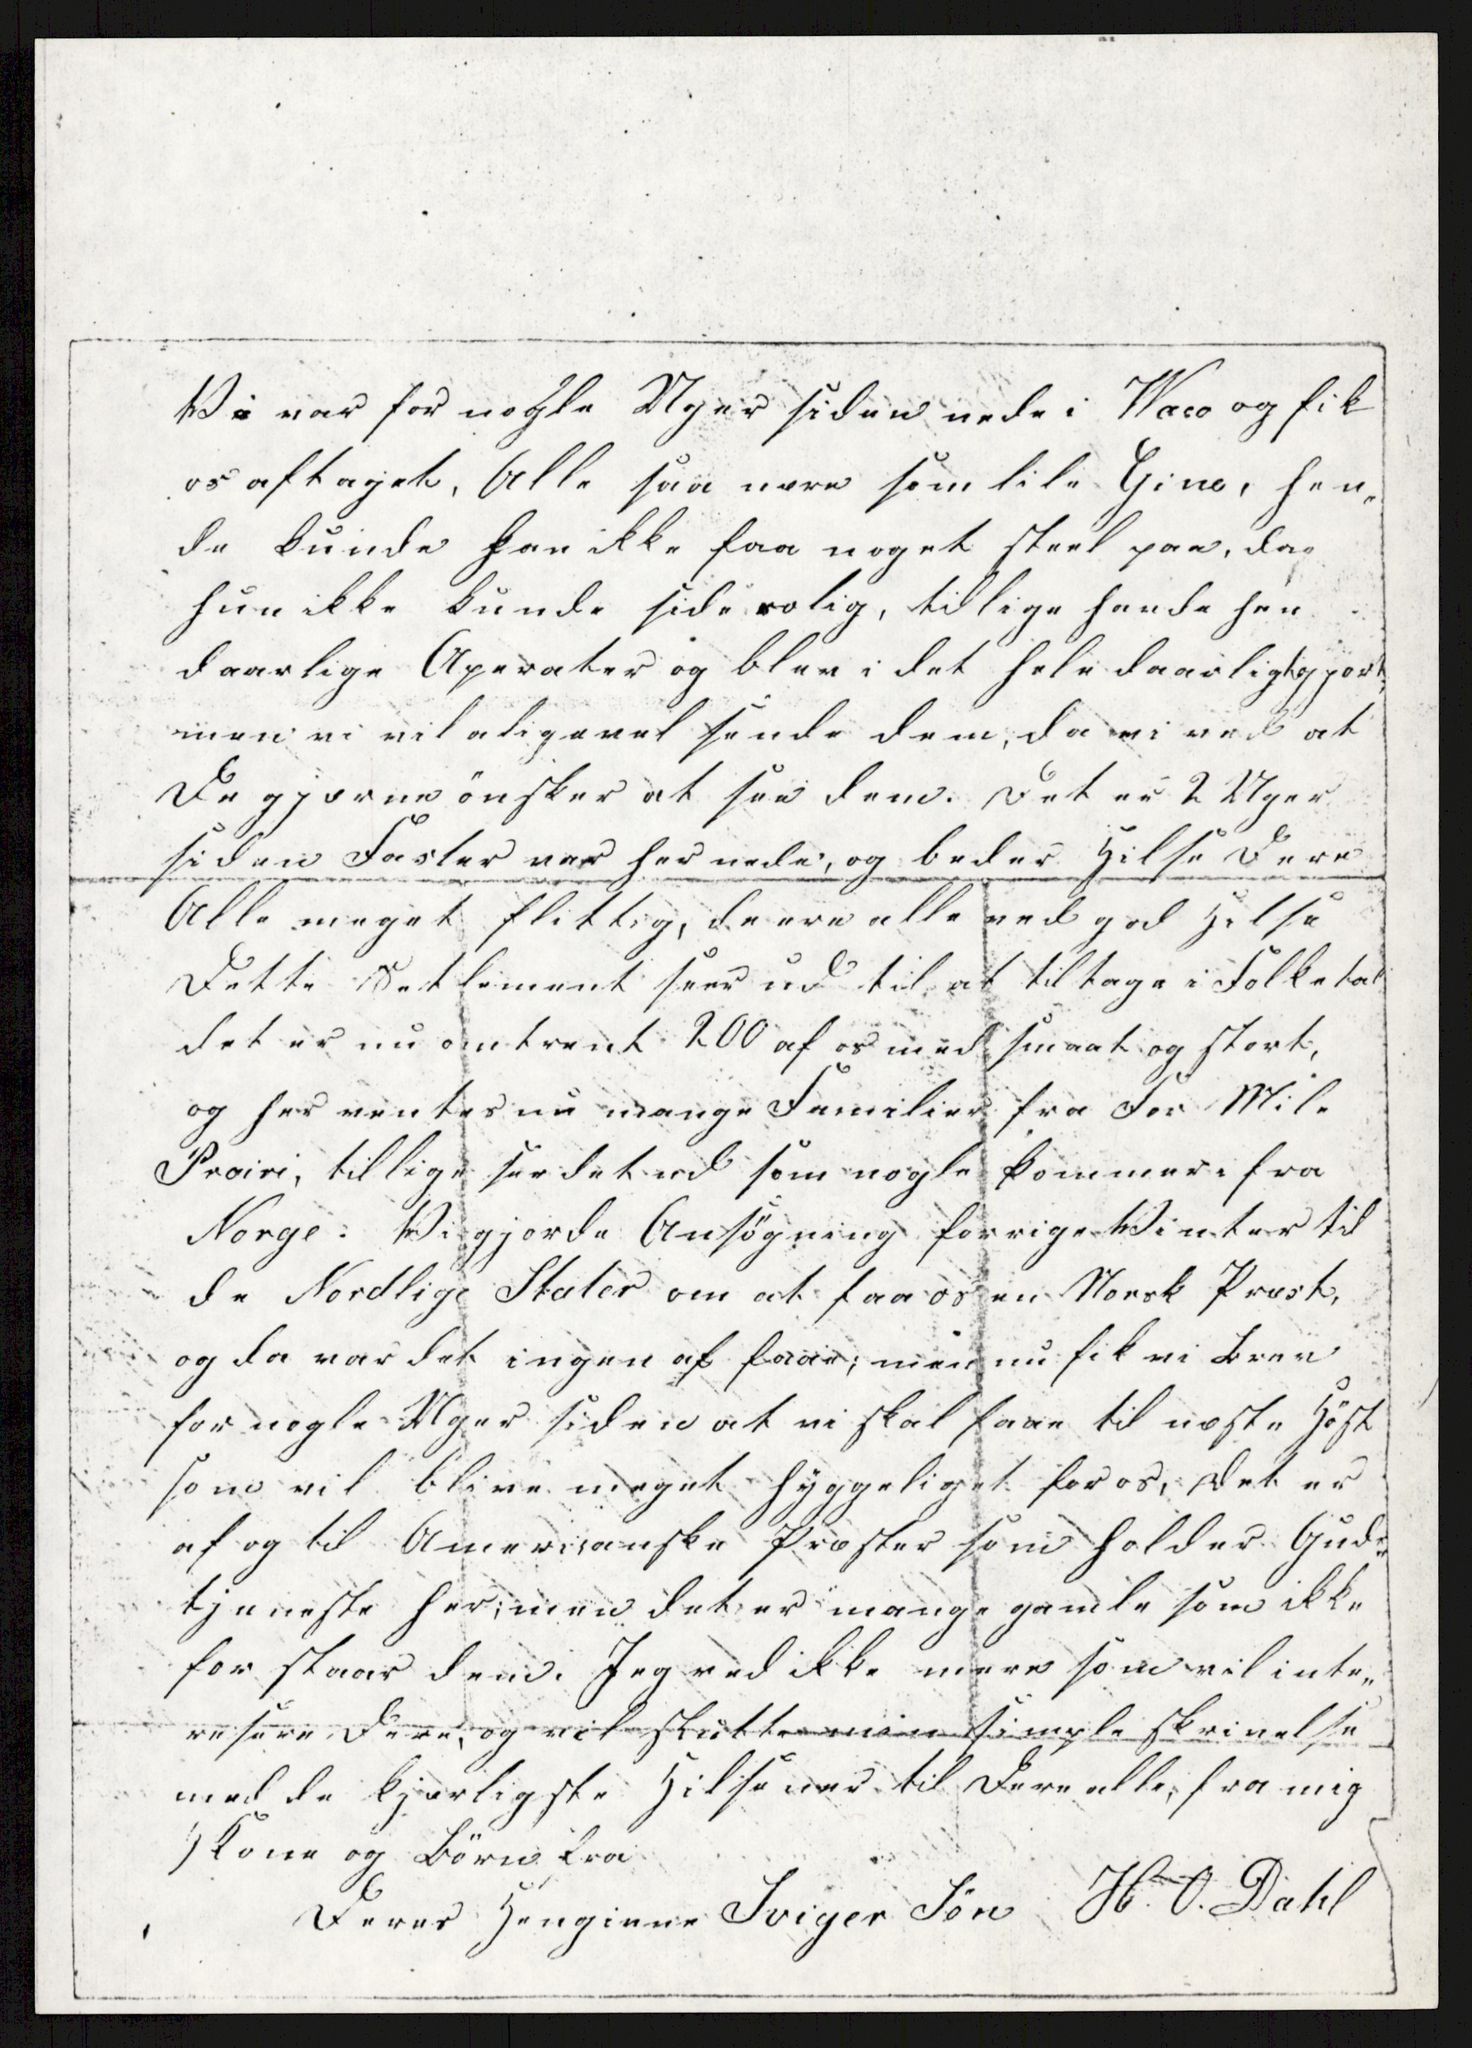 Vi var for nogle Uger siden nede i Waco og fik
os aftaget, Alle saa nære som lile Gine, hen„
de kunde han ikke faa noget steel paa, da
hun ikke kunde side rolig, tillige havde han
daarlige Aperater og blev i det hele daarligt gjort,
men vi vil aligevel sende dem, da vi ved at
De gjærne önsker at see dem. Det er 2 Uger
siden Faster var her nede, og beder Hilse Dere
Alle meget flittig, de ere alle ved god Hilse
Dette Setlement seer ud til at tiltage i Folketal
det er nu omtrent 200 af os med smaat og stort,
og her ventes nu mange Familier fra For Mile
Prairi, tillige see det ud som nogle kommer ifra
Norge. Vi gjorde Ansögning forrige Vinter til
de Nordlige Stater om at faa os en Norsk Præst,
og da var det ingen af faae; men nu fik vi Brev
for nogle Uger siden at vi skal faae til næste Höst
som vil blive meget hyggeliget for os, det er
af og til Americanske Præster som holder Guds„
tjeneste her; men det er mange gamle som ikke
for staar dem. Jeg ved ikke mere som vil inte„
resere Dere, og vil slutte min simple skrivelse
med de kjærligste Hilsener til Dere alle, fra mig
Kone og Börn fra
Deres Hengivne Sviger Sön H. O. Dahl